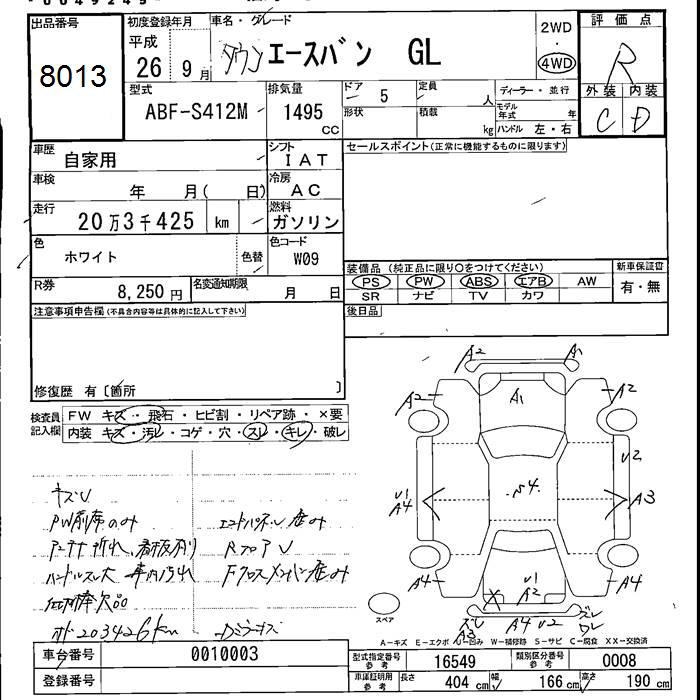 出品番号
8013
初度登録年月
平成
26 9月
車名・グレード
タウンエースバン GL
2WD
・
4WD
評価点
R
外装 内装
C D
型式
ABF-S412M
排気量
1495
cc
ドア 5
定員 人
ディーラー・並行
形状
積載 kg
モデル年式 年
ハンドル 左・右
車歴
自家用
シフト
IAT
セールスポイント(正常に機能するものに限ります)
車検
年 月( 日)
冷房
AC
走行
20万3千425 km
燃料
ガソリン
色
ホワイト
色替
色コード
W09
装備品 (純正品に限り○をつけてください)
PS PW ABS エアB AW
SR ナビ TV カワ
新車保証書
有・無
R券
8,250円
名変通知期限
月 日
後日品
注意事項申告欄(不具合内容等は具体的に記入して下さい)
修復歴 有〔箇所 〕
検査員記入欄
FW キズ・飛石・ヒビ割・リペア跡・×要
内装 キズ・汚レ・コゲ・穴・スレ・キレ・破レ
キズU
PW前席のみ
エンドパネル歪み
アンテナ折れ、看板有リ
RフロアU
ハンドルスレ大 車内汚れ
Fクロスメンバー歪み
オド203426km
A2
A1
A2
A2
A1
U2
U1
A4
S4
A3
A4
U1
A2
A4
X
ズレ
A3
A4 U2
ズレ
ワレ
スペア
A-キズ E-エクボ U-凹み W-補修跡 S-サビ C-腐食 XX-交換済
車台番号
0010003
登録番号
型式指定番号
参考
16549
類別区分番号
参考
0008
車庫証明用
参考
長さ 404 cm
幅 166 cm
高さ 190 cm